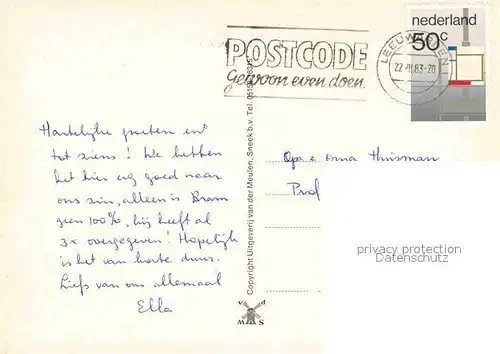 nederland
50c
POSTCODE
Gewoon even doen.
LEEUWARDEN
22.VII.83-20
Hartelijke groeten en
tot ziens! We hebben
het hier erg goed naar
ons zin, alleen is Bram
geen 100%, hij heeft al
3x overgegeven! Hopelijk
is het van korte duur.
Liefs van ons allemaal
Ella
Copyright Uitgeverij van der Meulen, Sneek b.v. Tel. 05150-
Opa e oma Huisman
Prof
privacy protection
Datenschutz
v d
W S